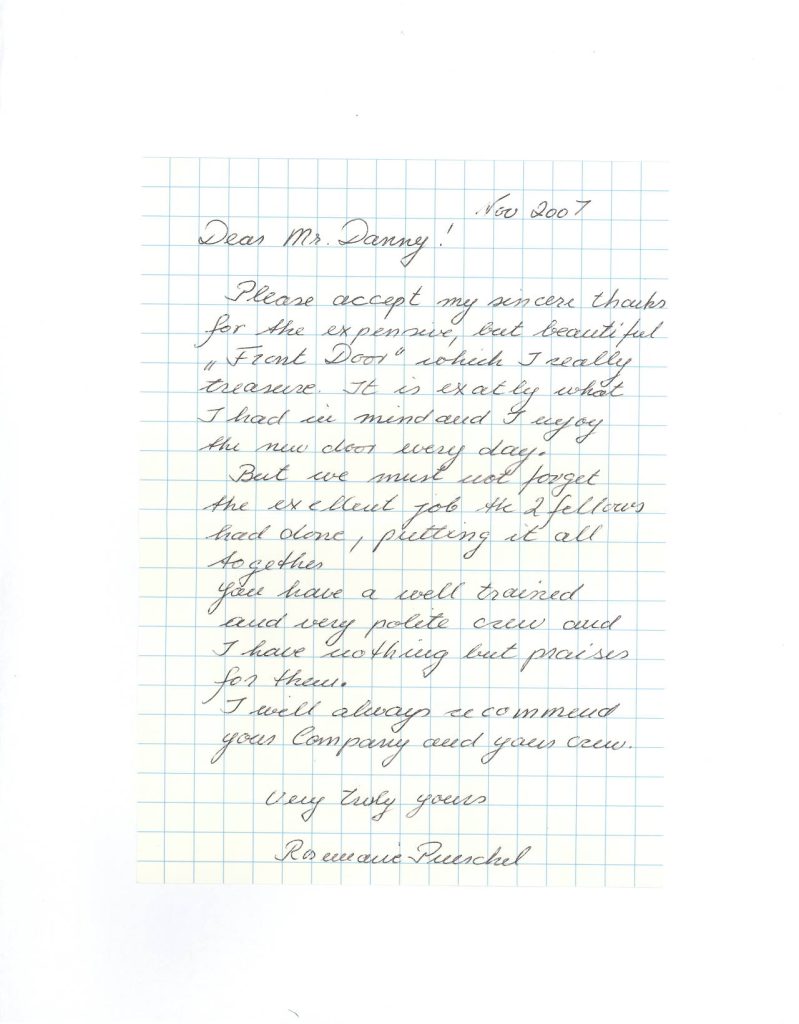 Nov 2007
Dear Mr. Danny!
Please accept my sincere thanks
for the expensive, but beautiful
„Front Door“ which I really
treasure. It is exatly what
I had in mind and I enjoy
the new door every day.
But we must not forget
the excellent job the 2 fellows
had done, putting it all
together
you have a well trained
and very polite crew and
I have nothing but praises
for them.
I will always recommend
your Company and your crew.
Very truly yours
Rosemarie